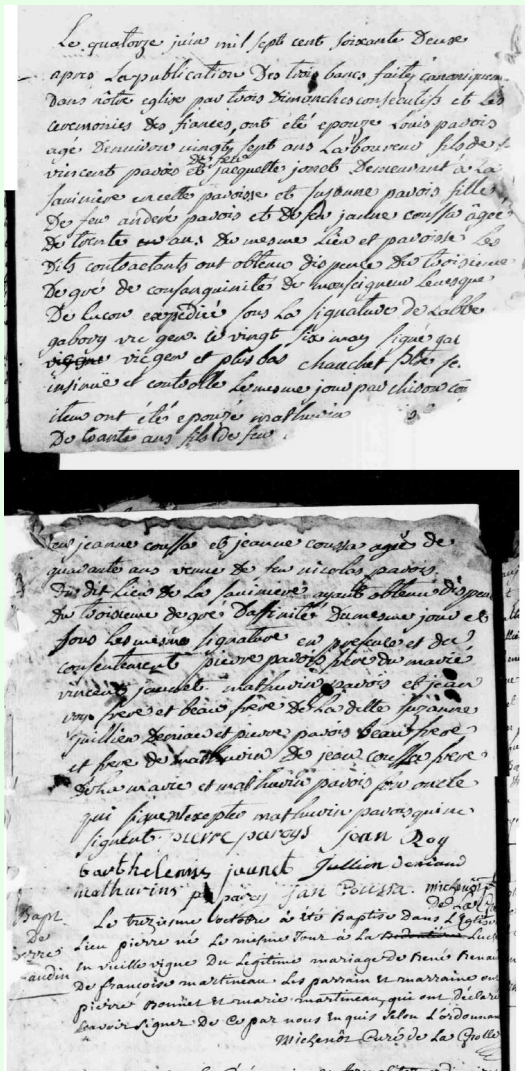 Le quatorze juin mil sept cent soixante Deux
apres La publication Des trois bancs faites canoniquem
Dans nôtre eglise par trois Dimanches consecutifs et Les
ceremonies des fiances, ont été epouze Louis pavois
age Denviron vingt sept ans Laboureur fils de
vincent pavois et de feu jacquette jonet Demeurant a La
saminiere en cette paroisse et susanne pavois fille
De feu andere pavois et de feu janne coussa âgée
de trente ans Du mesme Lieu et paroisse Les
Dits contractants ont obtenu dispence Du troisieme
De gré de consanguinité De monseigneur Levesque
De Lucon expedieé sous La signature de Labbe
gabory vic gen. ce vingt six may signé gai
vic gen et plus bas chauchet
insinué et controlle Le mesme jour par
item ont étés epouzé mathurin
De trante ans fils de feu
feu jeanne coussa et jeanne coussa agée de
quarante ans veuve de feu nicolas pavois
Du dit Lieu de La saminiere ayant obtenu dispen
Du troisieme de gré D'affinité Du mesme jour et
sous Les mesme signature en presence et du
consentement pierre pavois frere du marié
vincent jaunet mathurin pavois et jean
roy frere et beau frere De La ditte suzanne
jullien Deniau et pierre pavois beau frere
et frere de mathurin De jean coussa frere
De La mariée et mathurin pavois son oncle
qui signent excepté mathurin pavois qui ne
signent pierre paroys jean Roy
barthelemy jaunet Jullien deniaud
mathurins paroy Jan Coussa michenôt
de La
Bapt
De
pierre
Le trezieme octobre à été Baptisé Dans L'Eglise
Lieu pierre né Le mesme Jour à La
En vieille vigne Du Legitime mariage de René Renau
De francoise martineau Les parrain et marraine on
pierre Bonnet et marie martineau, qui ont déclaré
savoir signer De ce par nous Enquis selon L'ordonnan
Michenôt Curé de La Grolle